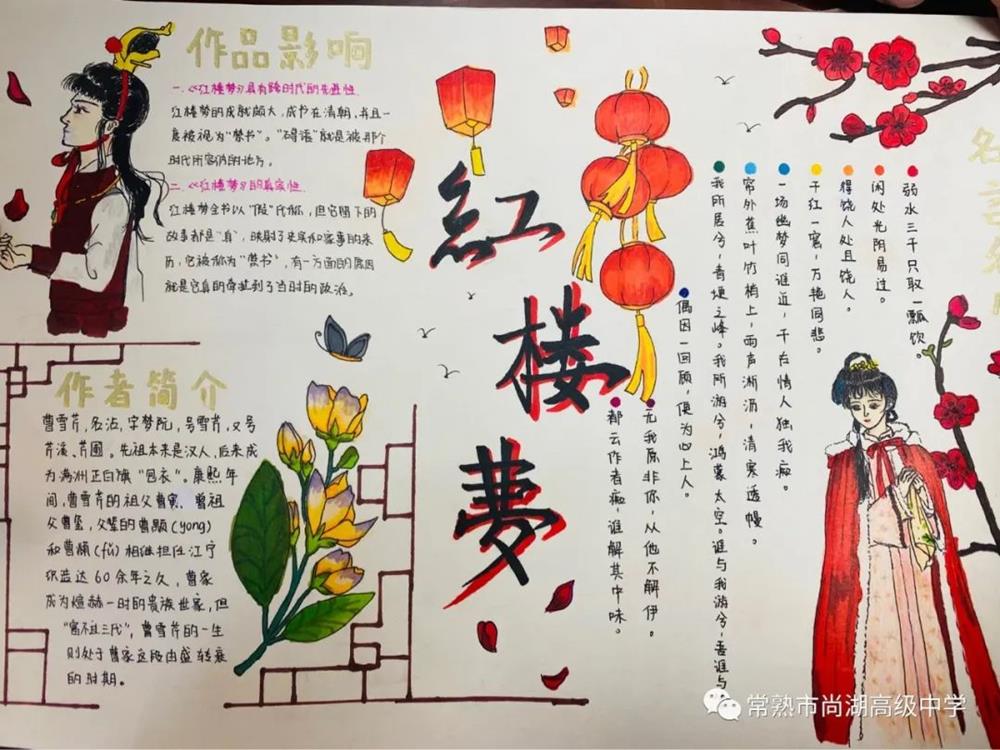 作品影响
一.《红楼梦》具有跨时代的先进性
红楼梦的成就颇大,成书在清朝,并且一
度被视为"禁书"。"碍语"就是被那个
时代所害怕的地方。
二.《红楼梦》的真家性
红楼梦全书以"假"代称,但它留下的
故事都是"真",映射了史实和家事的来
历,它被称为"禁书",有一方面的原因
就是它真的牵扯到了当时的政治。
作者简介
曹雪芹,名沾,字梦阮,号雪芹,又号
芹溪、芹圃。先祖本来是汉人,后来成
为满洲正白旗"包衣"。康熙年
间,曹雪芹的祖父曹寅、曾祖
父曹玺,父辈的曹颙(yong)
和曹頫(fǔ)相继担任江宁
织造达60余年之久,曹家
成为煊赫一时的贵族世家,但
"富不过三代",曹雪芹的一生
则处于曹家这段由盛转衰
的时期。
紅楼夢
名言名
弱水三千只取一瓢饮。
闲处光阴易过。
得饶人处且饶人。
千红一窟,万艳同悲。
一场幽梦同谁近,千古情人独我痴。
帘外蕉叶竹梢上,雨声淅沥,清寒透幔。
我所居兮,青埂之峰。我所游兮,鸿蒙太空。谁与我游兮,吾谁与
偶因一回顾,便为心上人。
无我原非你,从他不解伊。
都云作者痴,谁解其中味。
常熟市尚湖高级中学